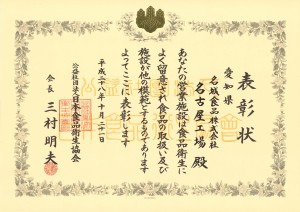 表彰状
愛知県
名城食品株式会社
名古屋工場 殿
あなたの営業施設は食品衛生に
よく留意され食品の取扱い及び
施設が他の模範とするものであります
よってここに表彰します
平成二十八年十月二十一日
公益社団法人日本食品衛生協会
会長 三村明夫